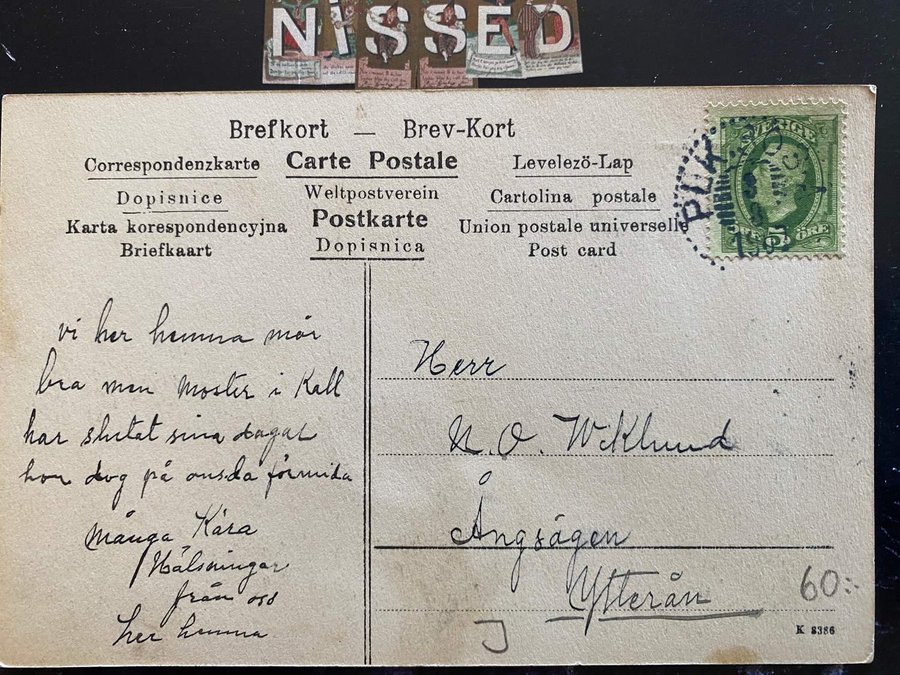 NiSSED
Brefkort — Brev-Kort
Correspondenzkarte Carte Postale Levelezö-Lap
Dopisnice Weltpostverein Cartolina postale
Karta korespondencyjna Postkarte Union postale universelle
Briefkaart Dopisnica Post card
SVERIGE
5 ÖRE
vi her hemma mår
bra men moster i Kall
har slutat sina dagar
hon dog på onsda förmida
många Kära
Hälsningar
från oss
her hemma
Herr
N. O. Wiklund
Ångsågen
Ytterån
60:-
K 8386